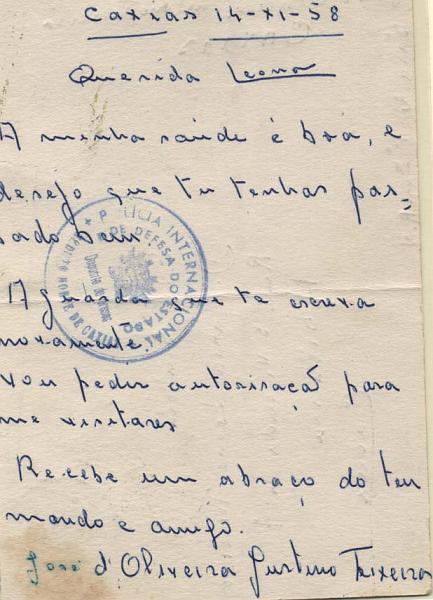 Caxias 14-XI-58
Querida Leonor
A minha saúde é boa, e
desejo que tu tenhas pas=
sado bem.
Aguardo que te escreva
novamente.
vou pedir autorisação para
me visitares
Recebe um abraço do teu
marido e amigo.
José d'Oliveira Justino Teixeira
POLÍCIA INTERNACIONAL
DE DEFESA DO ESTADO